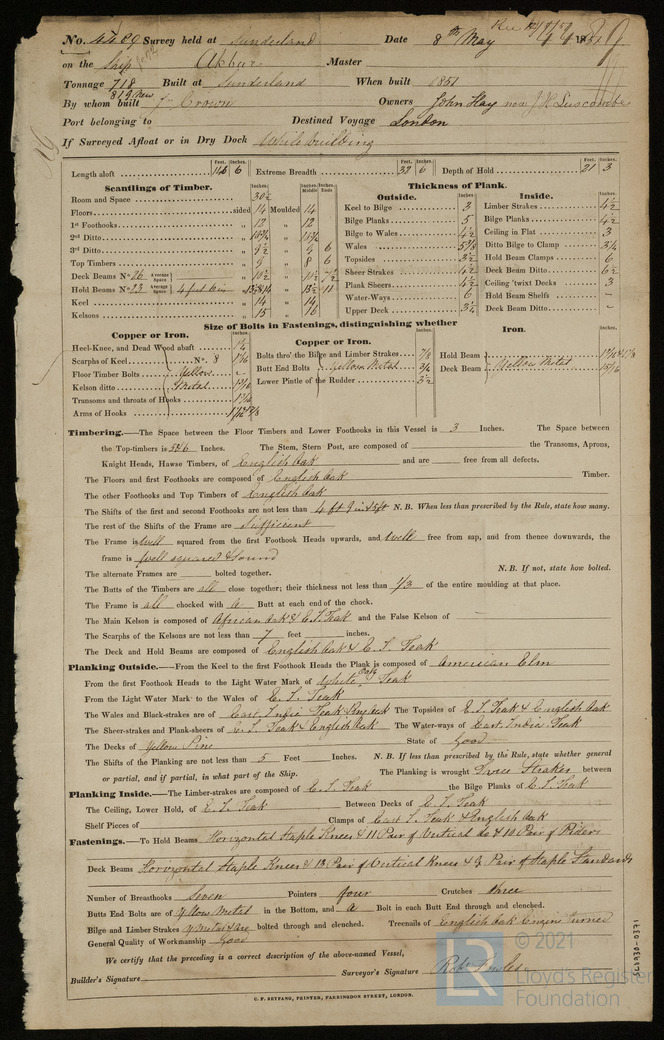 No. 4489 Survey held at Sunderland Date 8th May 1851
on the Ship Akbar Master
Tonnage 718 Built at Sunderland When built 1851
819 New
By whom built Jn Crown Owners John Hay now J H Luscombe
Port belonging to Destined Voyage London
If Surveyed Afloat or in Dry Dock While building
Feet. Inches. Feet. Inches. Feet. Inches.
Length aloft 146 6 Extreme Breadth 32 6 Depth of Hold 21 3
Scantlings of Timber. Inches. Inches. Middle Inches. Ends
Room and Space 30½
Floors sided 14 Moulded 14
1st Foothooks „ 12 „ 12
2nd Ditto „ „
3rd Ditto „ 9½ „ 9 6
Top Timbers „ 9 „ 8 6
Deck Beams No 26 Average Space „ 10½ „ 11½
Hold Beams No 23 Average Space 4 feet 6 in „ „ 13½ 11
Keel „ 14 „ 14
Kelsons „ 15 „ 16
Thickness of Plank.
Outside. Inches.
Keel to Bilge 3
Bilge Planks 5
Bilge to Wales 4½
Wales
Topsides 3½
Sheer Strakes 4½
Plank Sheers 4½
Water-Ways 6
Upper Deck
Inside. Inches.
Limber Strakes 4½
Bilge Planks 4½
Ceiling in Flat 3
Ditto Bilge to Clamp
Hold Beam Clamps 6
Deck Beam Ditto 6½
Ceiling 'twixt Decks 3
Hold Beam Shelfs -
Deck Beam Ditto -
Size of Bolts in Fastenings, distinguishing whether
Copper or Iron. Inches.
Heel-Knee, and Dead Wood abaft 1¼
Scarphs of Keel No. 8
Floor Timber Bolts Yellow
Kelson ditto Metal
Transoms and throats of Hooks
Arms of Hooks
Copper or Iron. Inches.
Bolts thro' the Bilge and Limber Strakes 7/8
Butt End Bolts Yellow Metal 3/4
Lower Pintle of the Rudder 3½
Iron. Inches.
Hold Beam
Deck Beam Yellow Metal 15/16
Timbering.—The Space between the Floor Timbers and Lower Foothooks in this Vessel is 3 Inches. The Space between
the Top-timbers is Inches. The Stem, Stern Post, are composed of the Transoms, Aprons,
Knight Heads, Hawse Timbers, of English Oak and are free from all defects.
The Floors and first Foothooks are composed of English Oak Timber.
The other Foothooks and Top Timbers of English Oak
The Shifts of the first and second Foothooks are not less than 4 ft 9 in N. B. When less than prescribed by the Rule, state how many.
The rest of the Shifts of the Frame are Sufficient
The Frame is Well squared from the first Foothook Heads upwards, and Well free from sap, and from thence downwards, the
frame is Well squared & Sound
The alternate Frames are bolted together. N. B. If not, state how bolted.
The Butts of the Timbers are all close together; their thickness not less than 1/3 of the entire moulding at that place.
The Frame is all chocked with a Butt at each end of the chock.
The Main Kelson is composed of African Oak & E. I. Teak and the False Kelson of -
The Scarphs of the Kelsons are not less than 7 feet inches.
The Deck and Hold Beams are composed of English Oak & E. I. Teak
Planking Outside.—From the Keel to the first Foothook Heads the Plank is composed of American Elm
From the first Foothook Heads to the Light Water Mark of White Oak & Teak
From the Light Water Mark to the Wales of E. I. Teak
The Wales and Black-strakes are of East India Teak & Eng Oak The Topsides of E. I. Teak & English Oak
The Sheer-strakes and Plank-sheers of E. I. Teak & English Oak The Water-ways of East India Teak
The Decks of Yellow Pine State of Good
The Shifts of the Planking are not less than 5 Feet Inches. N. B. If less than prescribed by the Rule, state whether general
or partial, and if partial, in what part of the Ship. The Planking is wrought Three Strakes between
Planking Inside.—The Limber-strakes are composed of E. I. Teak the Bilge Planks of E. I. Teak
The Ceiling, Lower Hold, of E. I. Teak Between Decks of E. I. Teak
Shelf Pieces of Clamps of East I. Teak & English Oak
Fastenings.—To Hold Beams Horizontal Staple Knees & 11 Pair of Vertical do & 10 Pair of Riders
Deck Beams Horizontal Staple Knees & 13 Pair of Vertical Knees & Pair of Staple Standards
Number of Breasthooks Seven Pointers four Crutches three
Butts End Bolts are of Yellow Metal in the Bottom, and a Bolt in each Butt End through and clenched.
Bilge and Limber Strakes Y Metal & are bolted through and clenched. Treenails of English Oak Engine turned
General Quality of Workmanship Good
We certify that the preceding is a correct description of the above-named Vessel,
Builder's Signature Surveyor's Signature
C. F. SEYFANG, PRINTER, FARRINGDON STREET, LONDON.
© 2021
Lloyd's Register
Foundation